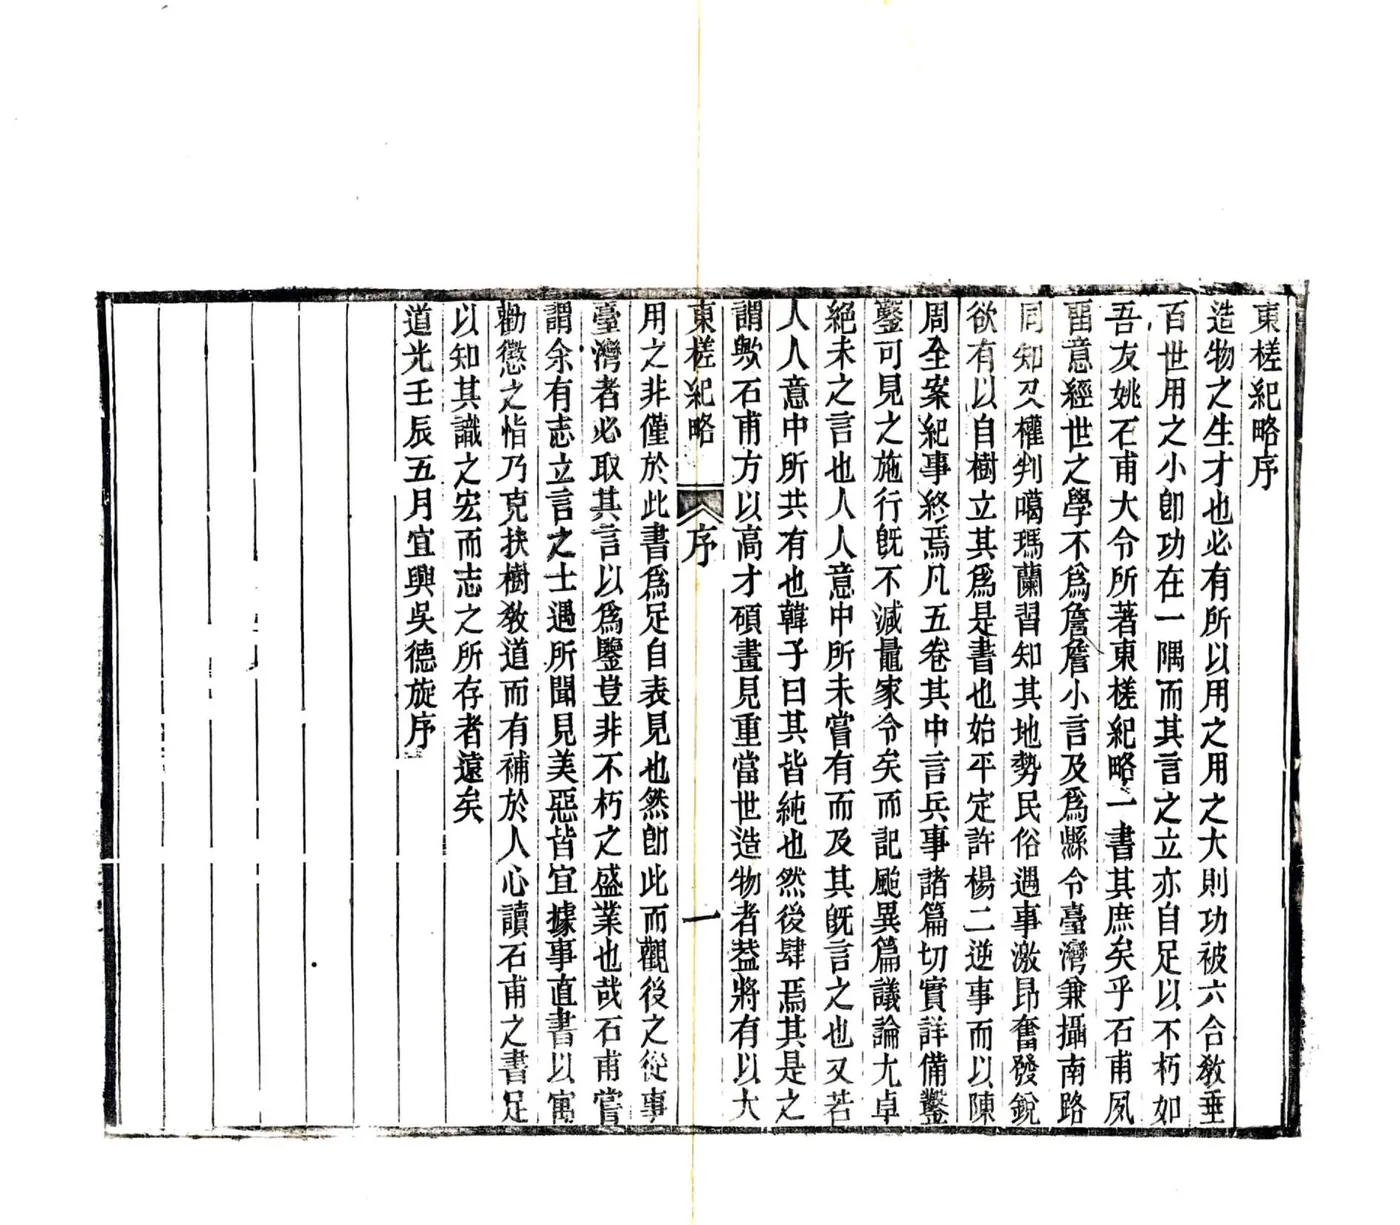 東槎紀略序
造物之生才也必有所以用之用之大則功被六合敎垂
百世用之小卽功在一隅而其言之立亦自足以不朽如
吾友姚石甫大令所著東槎紀略一書其庶矣乎石甫夙
畱意經世之學不爲詹詹小言及爲縣令臺灣兼攝南路
同知又權判噶瑪蘭習知其地勢民俗遇事激昂奮發銳
欲有以自樹立其爲是書也始平定許楊二逆事而以陳
周全案紀事終焉凡五卷其中言兵事諸篇切實詳備鑿
鑿可見之施行旣不減鼂家令矣而記颱異篇議論尤卓
絕未之言也人人意中所未嘗有而及其旣言之也又若
人人意中所共有也韓子曰其皆純也然後肆焉其是之
謂歟石甫方以高才碩畫見重當世造物者葢將有以大
東槎紀略 序 一
用之非僅於此書爲足自表見也然卽此而觀後之從事
臺灣者必取其言以爲鑒豈非不朽之盛業也哉石甫嘗
謂余有志立言之士遇所聞見美惡皆宜據事直書以寓
勸懲之恉乃克扶樹敎道而有補於人心讀石甫之書足
以知其識之宏而志之所存者遠矣
道光壬辰五月宜興吳德旋序